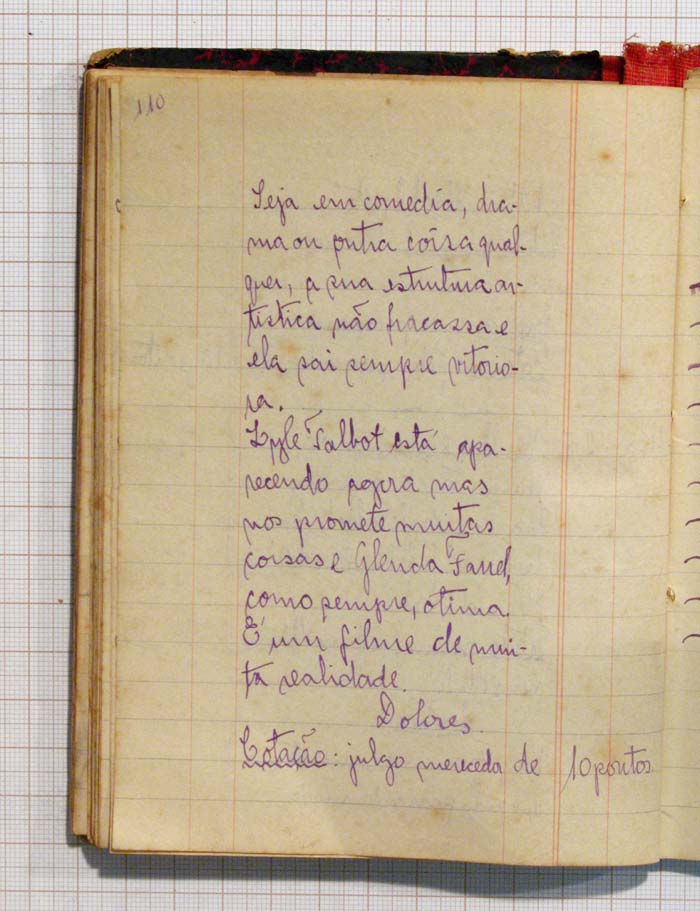 110
Seja em comedia, dra-
ma ou outra coisa qual-
quer, a sua estrutura ar-
tistica não fracassa e
ela sai sempre vitorio-
sa.
Lyle Talbot está apa-
recendo agora mas
nos promete muitas
coisas e Glenda Farrel,
como sempre, otima.
É um filme de mui-
ta realidade.
Dolores.
Cotação: julgo merecedor de 10 pontos.